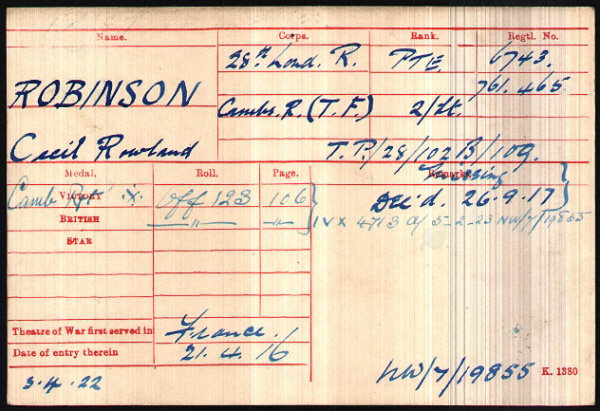 Name. Corps. Rank. Regtl. No.
28th Lond. R. PTE. 6743.
761.465
ROBINSON
Cambs. R. (T.F.) 2/Lt.
Cecil Rowland T.P./28/102B/109.
Medal. Roll. Page. Remarks. Missing
VICTORY Camb Rgt .x. Off 123 106 Dec'd. 26.9.17
BRITISH —"— —"— IVX 4713 d/ 5-2-23 NW/7/19855
STAR
Theatre of War first served in France.
Date of entry therein 21.4.16
3.4.22 NW/7/19855 K. 1380